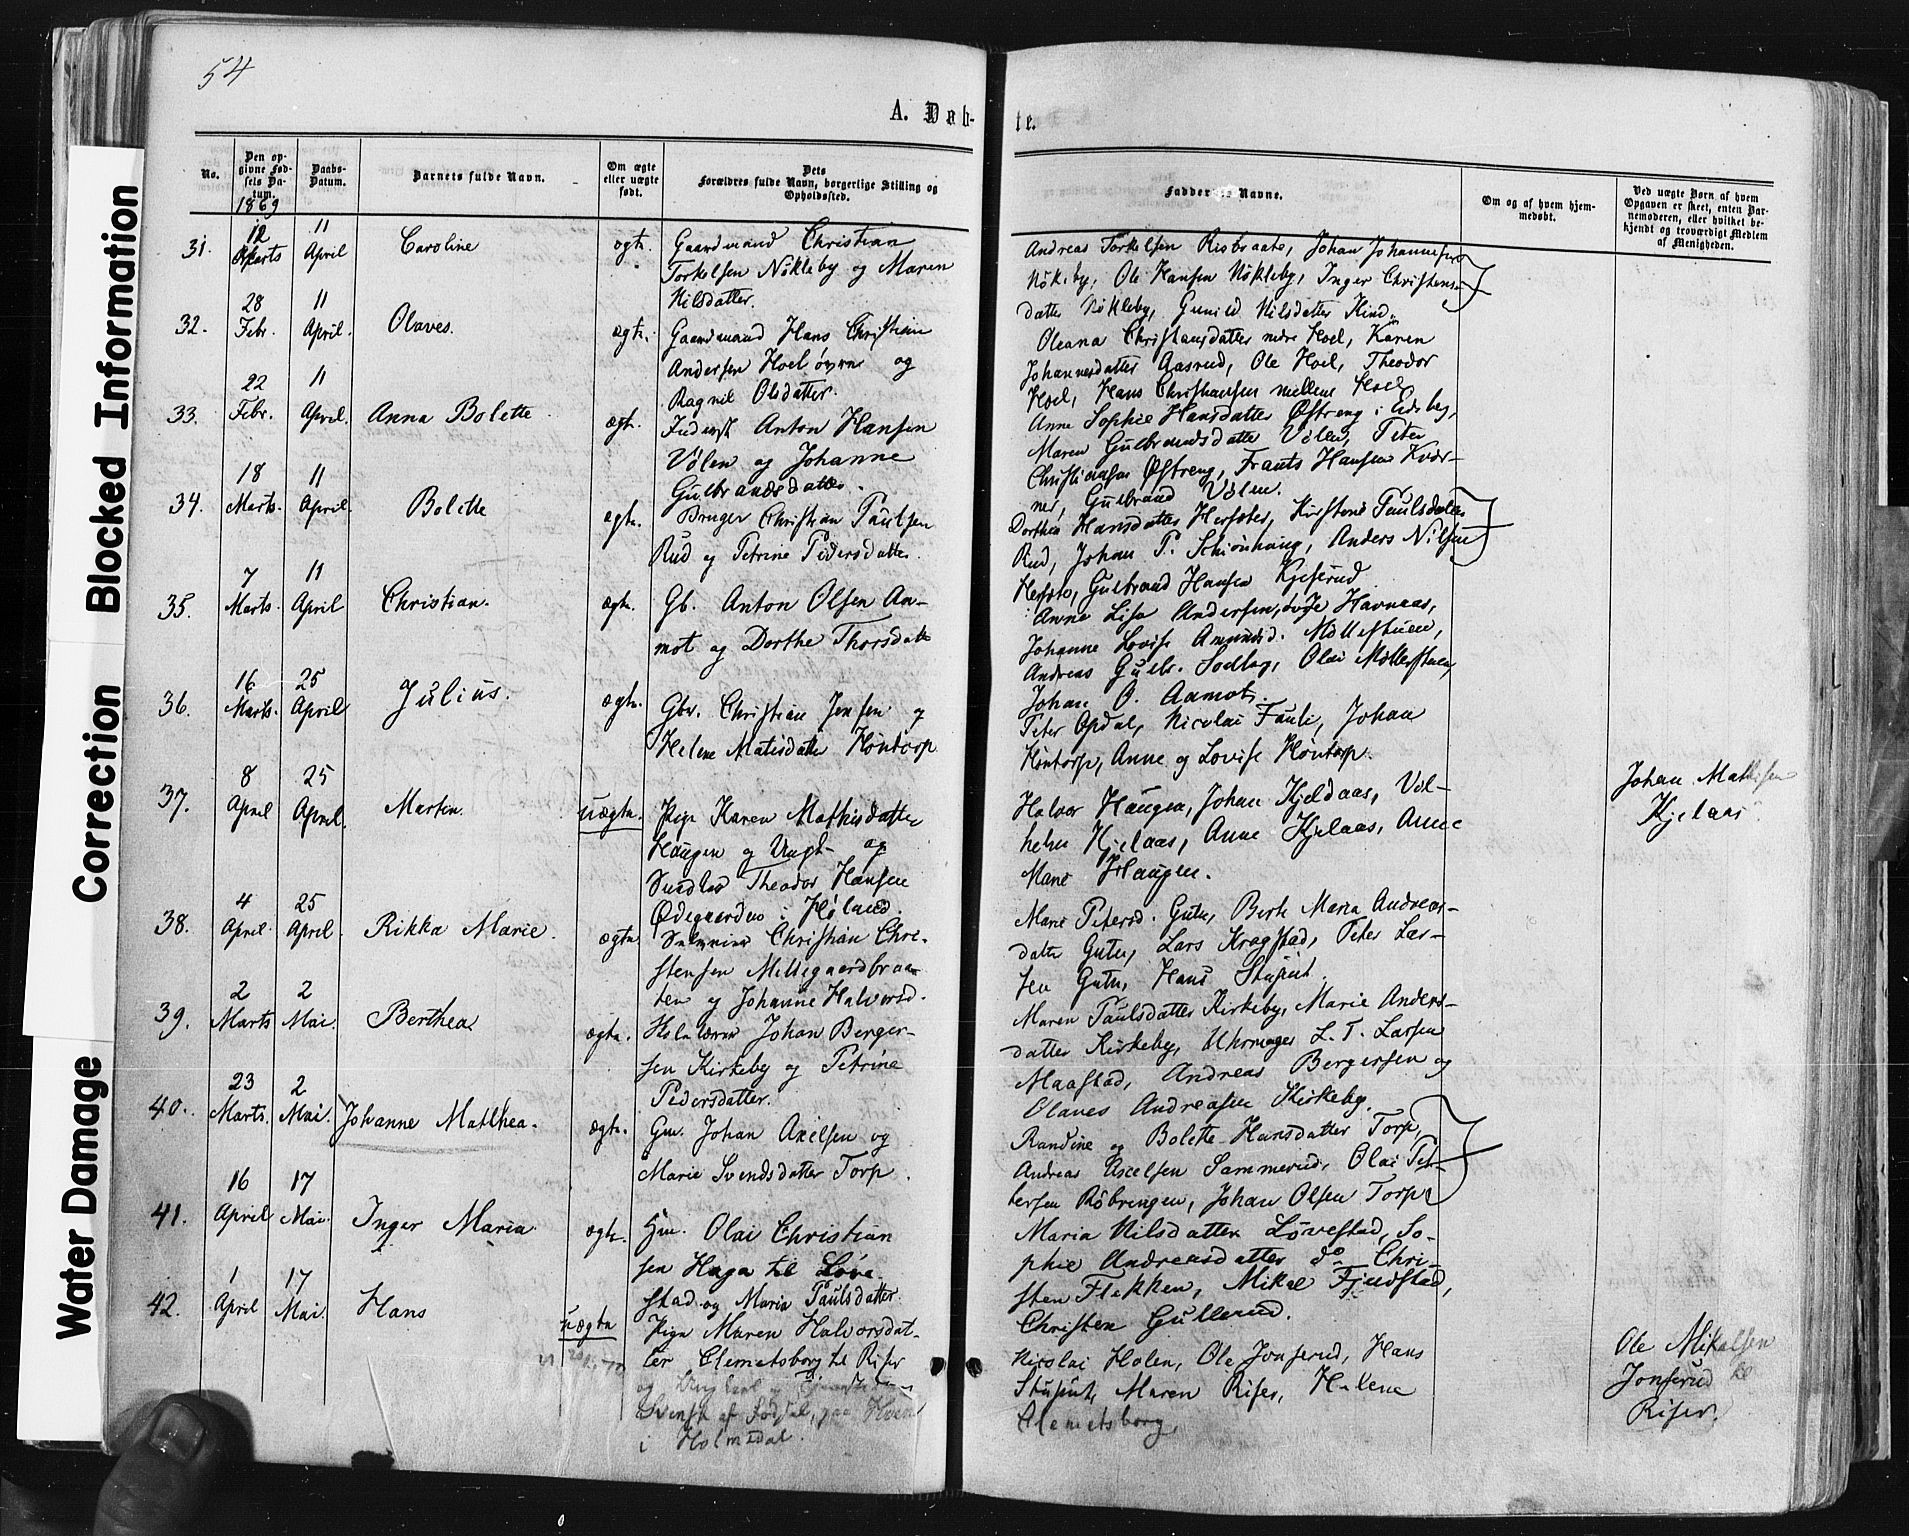 54
A. Døb-
te.
No.
Den op-
givne Fød-
sels Da-
tum.
Daabs-
Datum.
Barnets fulde Navn.
Om ægte
eller uægte
født.
Dets
Forældres fulde Navn, borgerlige Stilling og
Opholdssted.
Faddernes Navne.
Om og af hvem hjem-
medøbt.
Ved uægte Børn af hvem
Opgaven er skeet, enten Bar-
nemoderen, eller hvilket be-
kjendt og troværdigt Medlem
af Menigheden.
1869
31.
12
Marts
11
April
Caroline
ægte.
Gaardmand Christian
Torkelsen Nökleby og Maren
Nilsdatter.
Andreas Torkelsen Risbraate, Johan Johannesen
Nökleby, Ole Hansen Nökleby, Inger Christens-
datter Nökleby, Gunild Nilsdatter Kind.
32.
28
Febr.
11
April.
Olaves.
ægte.
Gaardmand Hans Christian
Andersen Hoel övre og
Ragnil Olsdatter.
Oleana Christiansdatter nedre Hoel, Karen
Johannesdatter Aasrud, Ole Hoel, Theodor
Hoel, Hans Christiansen mellem Hoel
33.
22
Febr.
11
April.
Anna Bolette
ægte.
Inderst Anton Hansen
Völen og Johanne
Gulbrandsdatter.
Anne Sophie Hansdatter Østreng i Eidsberg,
Maren Gulbrandsdatter Völen, Peter
Christiansen Østreng, Frants Hansen Kvær-
ner, Gulbrand Völen.
34.
18
Marts.
11
April.
Bolette
ægte.
Bruger Christian Paulsen
Rud og Petrine Pedersdatter.
Dorthea Hansdatter Herfster, Kirstene Paulsdatter
Rud, Johan P. Schiönhaug, Anders Nilsen
Gulbrand Hansen Kjeserud
35.
7
Marts.
11
April
Christian.
ægte.
Gb. Anton Olsen An-
mot og Dorthe Thorsdatter
Anne Lisa Andersen, Havnaas,
Johanne Lovise Amundsd. Möllestuen,
Andreas Gulbr. Olai Möllerstuen,
Johan O. Aamot.
36.
16
Marts.
25
April
Julius.
ægte.
Gbr. Christian Jensen og
Helene Matisdatter Höntorp
Peter Opdal, Nicolai Fauli, Johan
Höntorp, Anne og Lovise Höntorp.
37.
8
April
25
April.
Marten
uægte.
Pige Karen Mathisdatter
Haugen og Ungk. og
Theodor Hansen
Ødegaarden i Höland.
Halvor Haugen, Johan Kjeldaas, Vil-
helm Kjelaas, Anne Kjelaas, Anne
Marie Haugen.
Johan Mathisen
Kjelaas
38.
4
April
25
April.
Rikka Marie.
ægte
Christian Chri-
stensen Mellegaardbraa-
ten og Johanne Halvorsd.
Marie Petersd. Guten, Berte Maria Andreas-
datter Guten, Lars Kragstad, Peter Lar-
sen Guten, Hans Stuput.
39.
2
Marts
2
Mai.
Berthea
ægte.
Skolelærer Johan Berger-
sen Kirkeby og Petrine
Pedersdatter.
Maren Paulsdatter Kirkeby, Marie Anders-
datter Kirkeby, Uhrmager L. T. Larsen
Maastad, Andreas Bergersen og
Olaves Andreasen Kirkeby.
40.
23
Marts.
2
Mai.
Johanne Mathea.
ægte.
Gm. Johan Axelsen og
Marie Svendsdatter Torp.
Randine og Bolette Hansdatter Torp,
Andreas Axelsen Sammerud, Olai Pet-
tersen Röbrengen, Johan Olsen Torp
41.
16
April
17
Mai.
Inger Maria
ægte.
Gm. Olai Christian
sen Haga til Löve-
stad og Maria Paulsdatter.
Maria Nilsdatter Lövestad, So-
phie Andreasdatter do Chri-
sten Flekken, Mikal Fjudstad,
Christen Gullerud.
42.
1
April
17
Mai.
Hans
uægte
Pige Maren Halvorsdat-
ter Clemetsborg til Riser
og Ungkarl
Svensk af Födsel, paa
i Holmedal.
Nicolai Holen, Ole Jonserud, Hans
Stuput, Maren Riser, Helene
Clemetsborg,
Ole Mikalsen
Jonserud
Riser.
Water Damage
Correction
Blocked Information